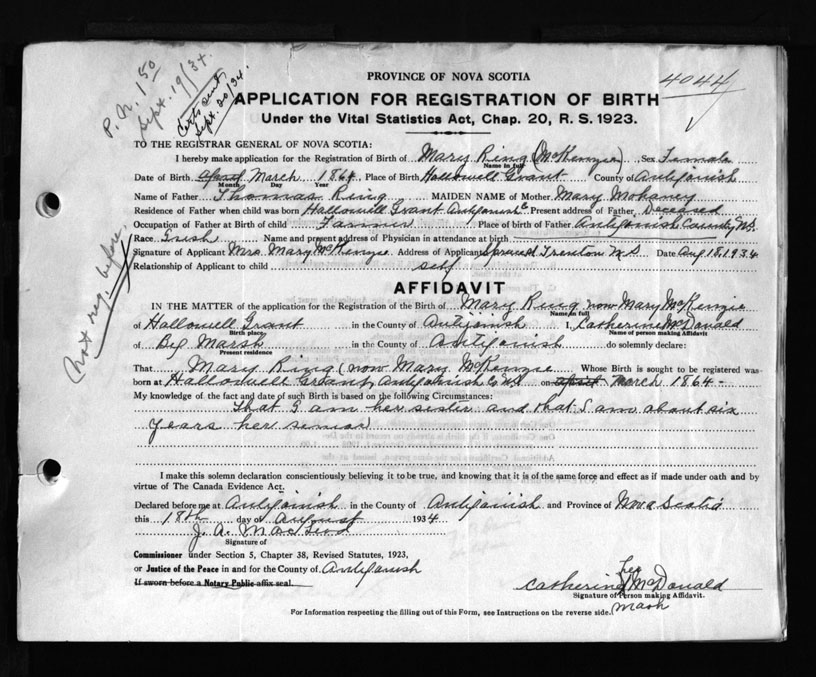 P. N. 1 50
Sept. 19/34.
Certs sent
Sept. 20/34.
4044
PROVINCE OF NOVA SCOTIA
APPLICATION FOR REGISTRATION OF BIRTH
Under the Vital Statistics Act, Chap. 20, R. S. 1923.
TO THE REGISTRAR GENERAL OF NOVA SCOTIA:
I hereby make application for the Registration of Birth of Mary Ring (McKenzie) Sex Female
Name in full
Date of Birth April March 1864 Place of Birth Hallowell Grant County of Antigonish
Month Day Year
Name of Father Thomas Ring MAIDEN NAME of Mother Mary Mohaney
Residence of Father when child was born Hallowell Grant Antigonish Co Present address of Father Deceased
Occupation of Father at Birth of child Farmer Place of birth of Father Antigonish County N.S.
Race Irish Name and present address of Physician in attendance at birth
Signature of Applicant Mrs Mary McKenzie Address of Applicant Trenton N.S. Date Aug 18, 1934
Relationship of Applicant to child self
AFFIDAVIT
IN THE MATTER of the application for the Registration of the Birth of Mary Ring now Mary McKenzie
Name in full
of Hallowell Grant in the County of Antigonish I, Catherine McDonald
Birth place. Name of person making Affidavit
of Big Marsh in the County of Antigonish do solemnly declare:
Present residence
That Mary Ring (now Mary McKenzie Whose Birth is sought to be registered was
born at Hallowell Grant, Antigonish Co NS on April March 1864 -
My knowledge of the fact and date of such Birth is based on the following Circumstances:
That I am her sister and that I am about six
years her senior
Not reg. before.
I make this solemn declaration conscientiously believing it to be true, and knowing that it is of the same force and effect as if made under oath and by
virtue of The Canada Evidence Act.
Declared before me at Antigonish in the County of Antigonish and Province of Nova Scotia
this 18th day of August 1934
J. A. MacLeod
Signature of
Commissioner under Section 5, Chapter 38, Revised Statutes, 1923,
or Justice of the Peace in and for the County of Antigonish
If sworn before a Notary Public affix seal.
her
Catherine X McDonald
Signature of Person making Affidavit.
mark
For Information respecting the filling out of this Form, see Instructions on the reverse side.